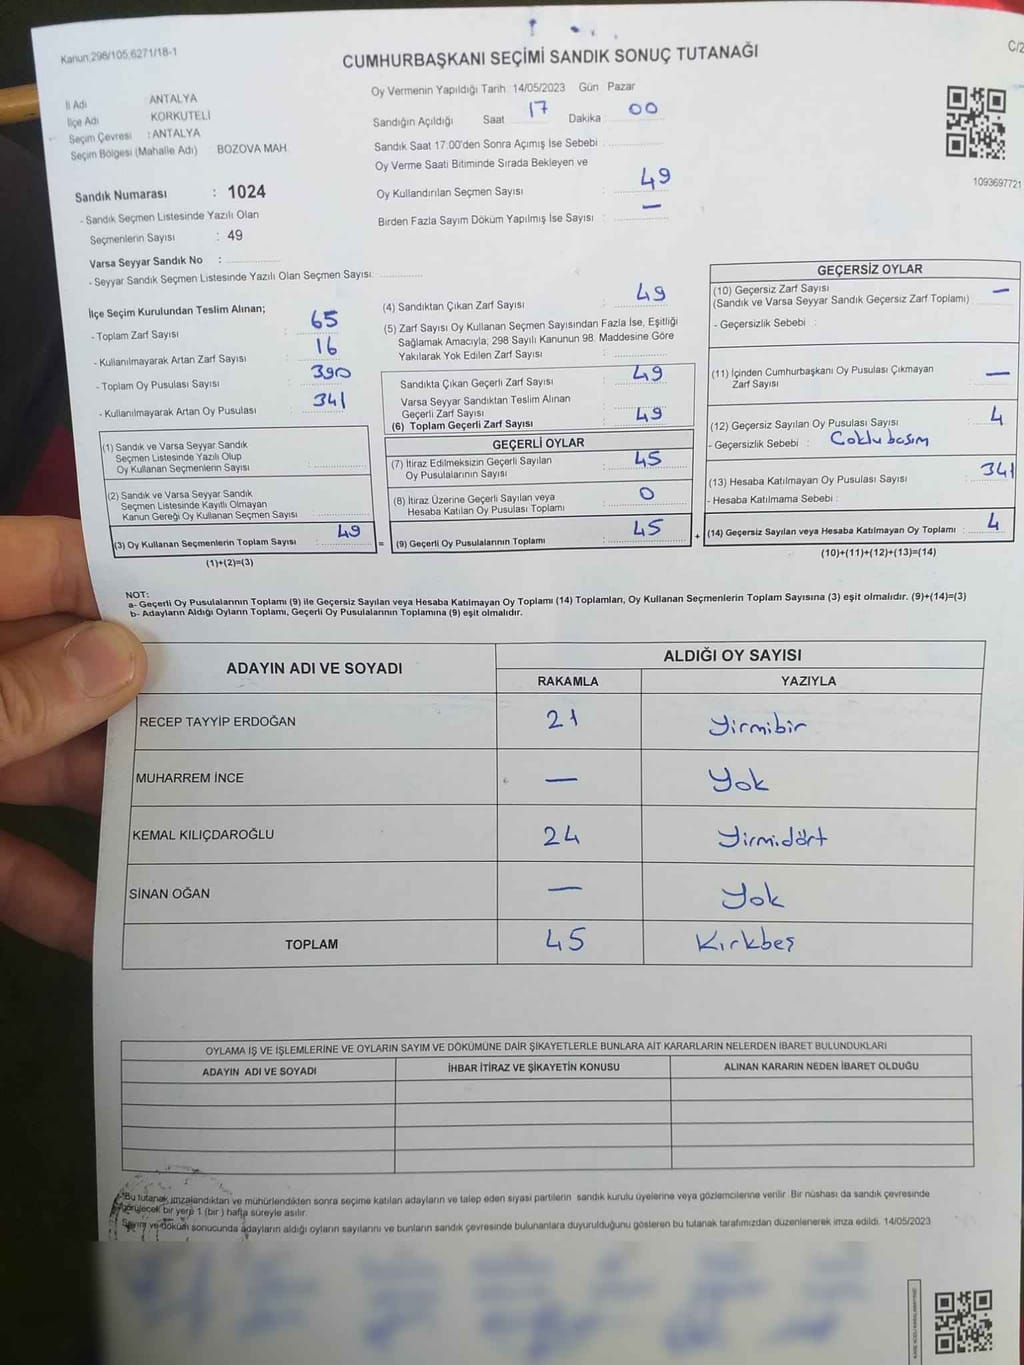 Kanun;298/105,6271/18-1
C/2
CUMHURBAŞKANI SEÇİMİ SANDIK SONUÇ TUTANAĞI
İl Adı ANTALYA
İlçe Adı KORKUTELİ
Seçim Çevresi : ANTALYA
Seçim Bölgesi (Mahalle Adı) : BOZOVA MAH.
Oy Vermenin Yapıldığı Tarih 14/05/2023 Gün Pazar
Sandığın Açıldığı Saat 17 Dakika 00
Sandık Saat 17:00'den Sonra Açımış İse Sebebi :
Oy Verme Saati Bitiminde Sırada Bekleyen ve
Oy Kullandırılan Seçmen Sayısı : 49
Birden Fazla Sayım Döküm Yapılmış İse Sayısı : —
1093697721
Sandık Numarası : 1024
- Sandık Seçmen Listesinde Yazılı Olan
Seçmenlerin Sayısı : 49
Varsa Seyyar Sandık No :
- Seyyar Sandık Seçmen Listesinde Yazılı Olan Seçmen Sayısı:
İlçe Seçim Kurulundan Teslim Alınan;
- Toplam Zarf Sayısı : 65
- Kullanılmayarak Artan Zarf Sayısı : 16
- Toplam Oy Pusulası Sayısı : 390
- Kullanılmayarak Artan Oy Pusulası : 341
(1) Sandık ve Varsa Seyyar Sandık
Seçmen Listesinde Yazılı Olup
Oy Kullanan Seçmenlerin Sayısı :
(2) Sandık ve Varsa Seyyar Sandık
Seçmen Listesinde Kayıtlı Olmayan
Kanun Gereği Oy Kullanan Seçmen Sayısı :
(3) Oy Kullanan Seçmenlerin Toplam Sayısı : 49
(1)+(2)=(3)
(4) Sandıktan Çıkan Zarf Sayısı : 49
(5) Zarf Sayısı Oy Kullanan Seçmen Sayısından Fazla İse, Eşitliği
Sağlamak Amacıyla; 298 Sayılı Kanunun 98. Maddesine Göre
Yakılarak Yok Edilen Zarf Sayısı :
Sandıkta Çıkan Geçerli Zarf Sayısı : 49
Varsa Seyyar Sandıktan Teslim Alınan
Geçerli Zarf Sayısı :
(6) Toplam Geçerli Zarf Sayısı : 49
GEÇERLİ OYLAR
(7) İtiraz Edilmeksizin Geçerli Sayılan
Oy Pusulalarının Sayısı : 45
(8) İtiraz Üzerine Geçerli Sayılan veya
Hesaba Katılan Oy Pusulası Toplamı : 0
= (9) Geçerli Oy Pusulalarının Toplamı : 45 +
GEÇERSİZ OYLAR
(10) Geçersiz Zarf Sayısı : —
(Sandık ve Varsa Seyyar Sandık Geçersiz Zarf Toplamı)
- Geçersizlik Sebebi :
(11) İçinden Cumhurbaşkanı Oy Pusulası Çıkmayan
Zarf Sayısı : —
(12) Geçersiz Sayılan Oy Pusulası Sayısı : 4
- Geçersizlik Sebebi : Çoklu basım
(13) Hesaba Katılmayan Oy Pusulası Sayısı : 341
- Hesaba Katılmama Sebebi :
(14) Geçersiz Sayılan veya Hesaba Katılmayan Oy Toplamı : 4
(10)+(11)+(12)+(13)=(14)
NOT:
a- Geçerli Oy Pusulalarının Toplamı (9) ile Geçersiz Sayılan veya Hesaba Katılmayan Oy Toplamı (14) Toplamları, Oy Kullanan Seçmenlerin Toplam Sayısına (3) eşit olmalıdır. (9)+(14)=(3)
b- Adayların Aldığı Oyların Toplamı, Geçerli Oy Pusulalarının Toplamına (9) eşit olmalıdır.
ADAYIN ADI VE SOYADI ALDIĞI OY SAYISI
RAKAMLA YAZIYLA
RECEP TAYYİP ERDOĞAN 21 Yirmibir
MUHARREM İNCE — Yok
KEMAL KILIÇDAROĞLU 24 Yirmidört
SİNAN OĞAN — Yok
TOPLAM 45 Kırkbeş
OYLAMA İŞ VE İŞLEMLERİNE VE OYLARIN SAYIM VE DÖKÜMÜNE DAİR ŞİKAYETLERLE BUNLARA AİT KARARLARIN NELERDEN İBARET BULUNDUKLARI
ADAYIN ADI VE SOYADI İHBAR İTİRAZ VE ŞİKAYETİN KONUSU ALINAN KARARIN NEDEN İBARET OLDUĞU
Bu tutanak imzalandıktan ve mühürlendikten sonra seçime katılan adayların ve talep eden siyasi partilerin sandık kurulu üyelerine veya gözlemcilerine verilir. Bir nüshası da sandık çevresinde
görülecek bir yere 1 (bir) hafta süreyle asılır.
Sayım ve döküm sonucunda adayların aldığı oyların sayılarını ve bunların sandık çevresinde bulunanlara duyurulduğunu gösteren bu tutanak tarafımızdan düzenlenerek imza edildi. 14/05/2023